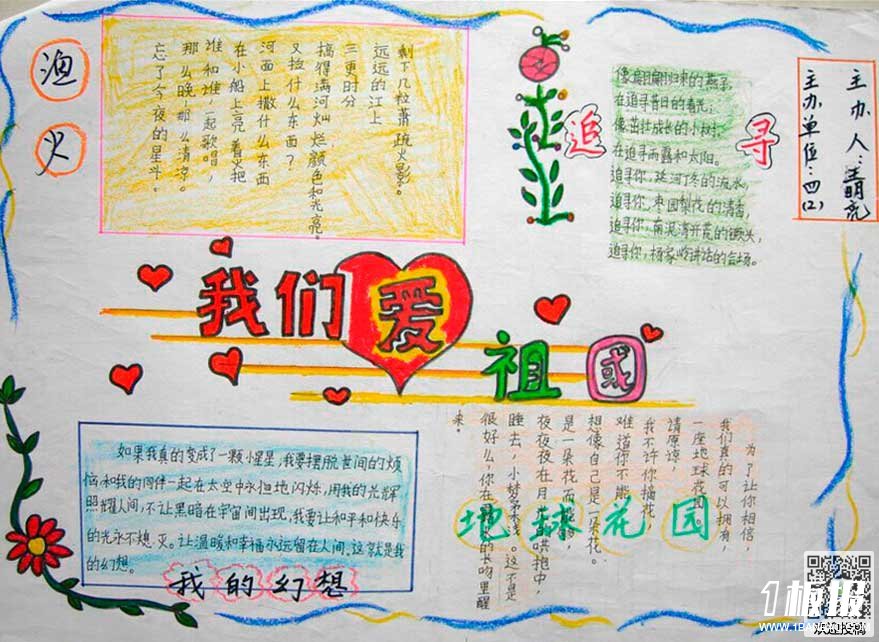 渔火
忘了今夜的星斗。
那么晚,那么清凉。
谁和谁一起歌唱,
在小船上亮着火把
河面上撒什么东西
又捡什么东面?
搞得满河灿烂颜色和光亮。
三更时分
远远的江上
剩下几粒萧疏火影。
追寻
像翩翩归来的燕子,
在追寻昔日的春光;
像茁壮成长的小树,
在追寻雨露和太阳。
追寻你,延河丁冬的流水,
追寻你,枣园梨花的清香,
追寻你,南泥湾开荒的锄头,
追寻你,杨家岭讲话的会场。
主办人:
主办单位:四(2)
我们爱祖国
如果我真的变成了一颗小星星,我要摆脱世间的烦
恼和我的同伴一起在太空中永恒地闪烁,用我的光辉
照耀人间,不让黑暗在宇宙间出现,我要让和平和快乐
的光永不熄灭。让温暖和幸福永远留在人间。这就是我
的幻想。
我的幻想
为了让你相信,
我们真的可以拥有,
一座地球花园。
请原谅,
我不许你摘花,
难道你不能
想像自己是一朵花。
是一朵花而能够,
夜夜夜在月光的哄抱中,
睡去,小 。这不是
很好么,你在 的长吻里醒
来。
地球花园
1板报
WWW.1BANBAO.COM
欢迎投稿